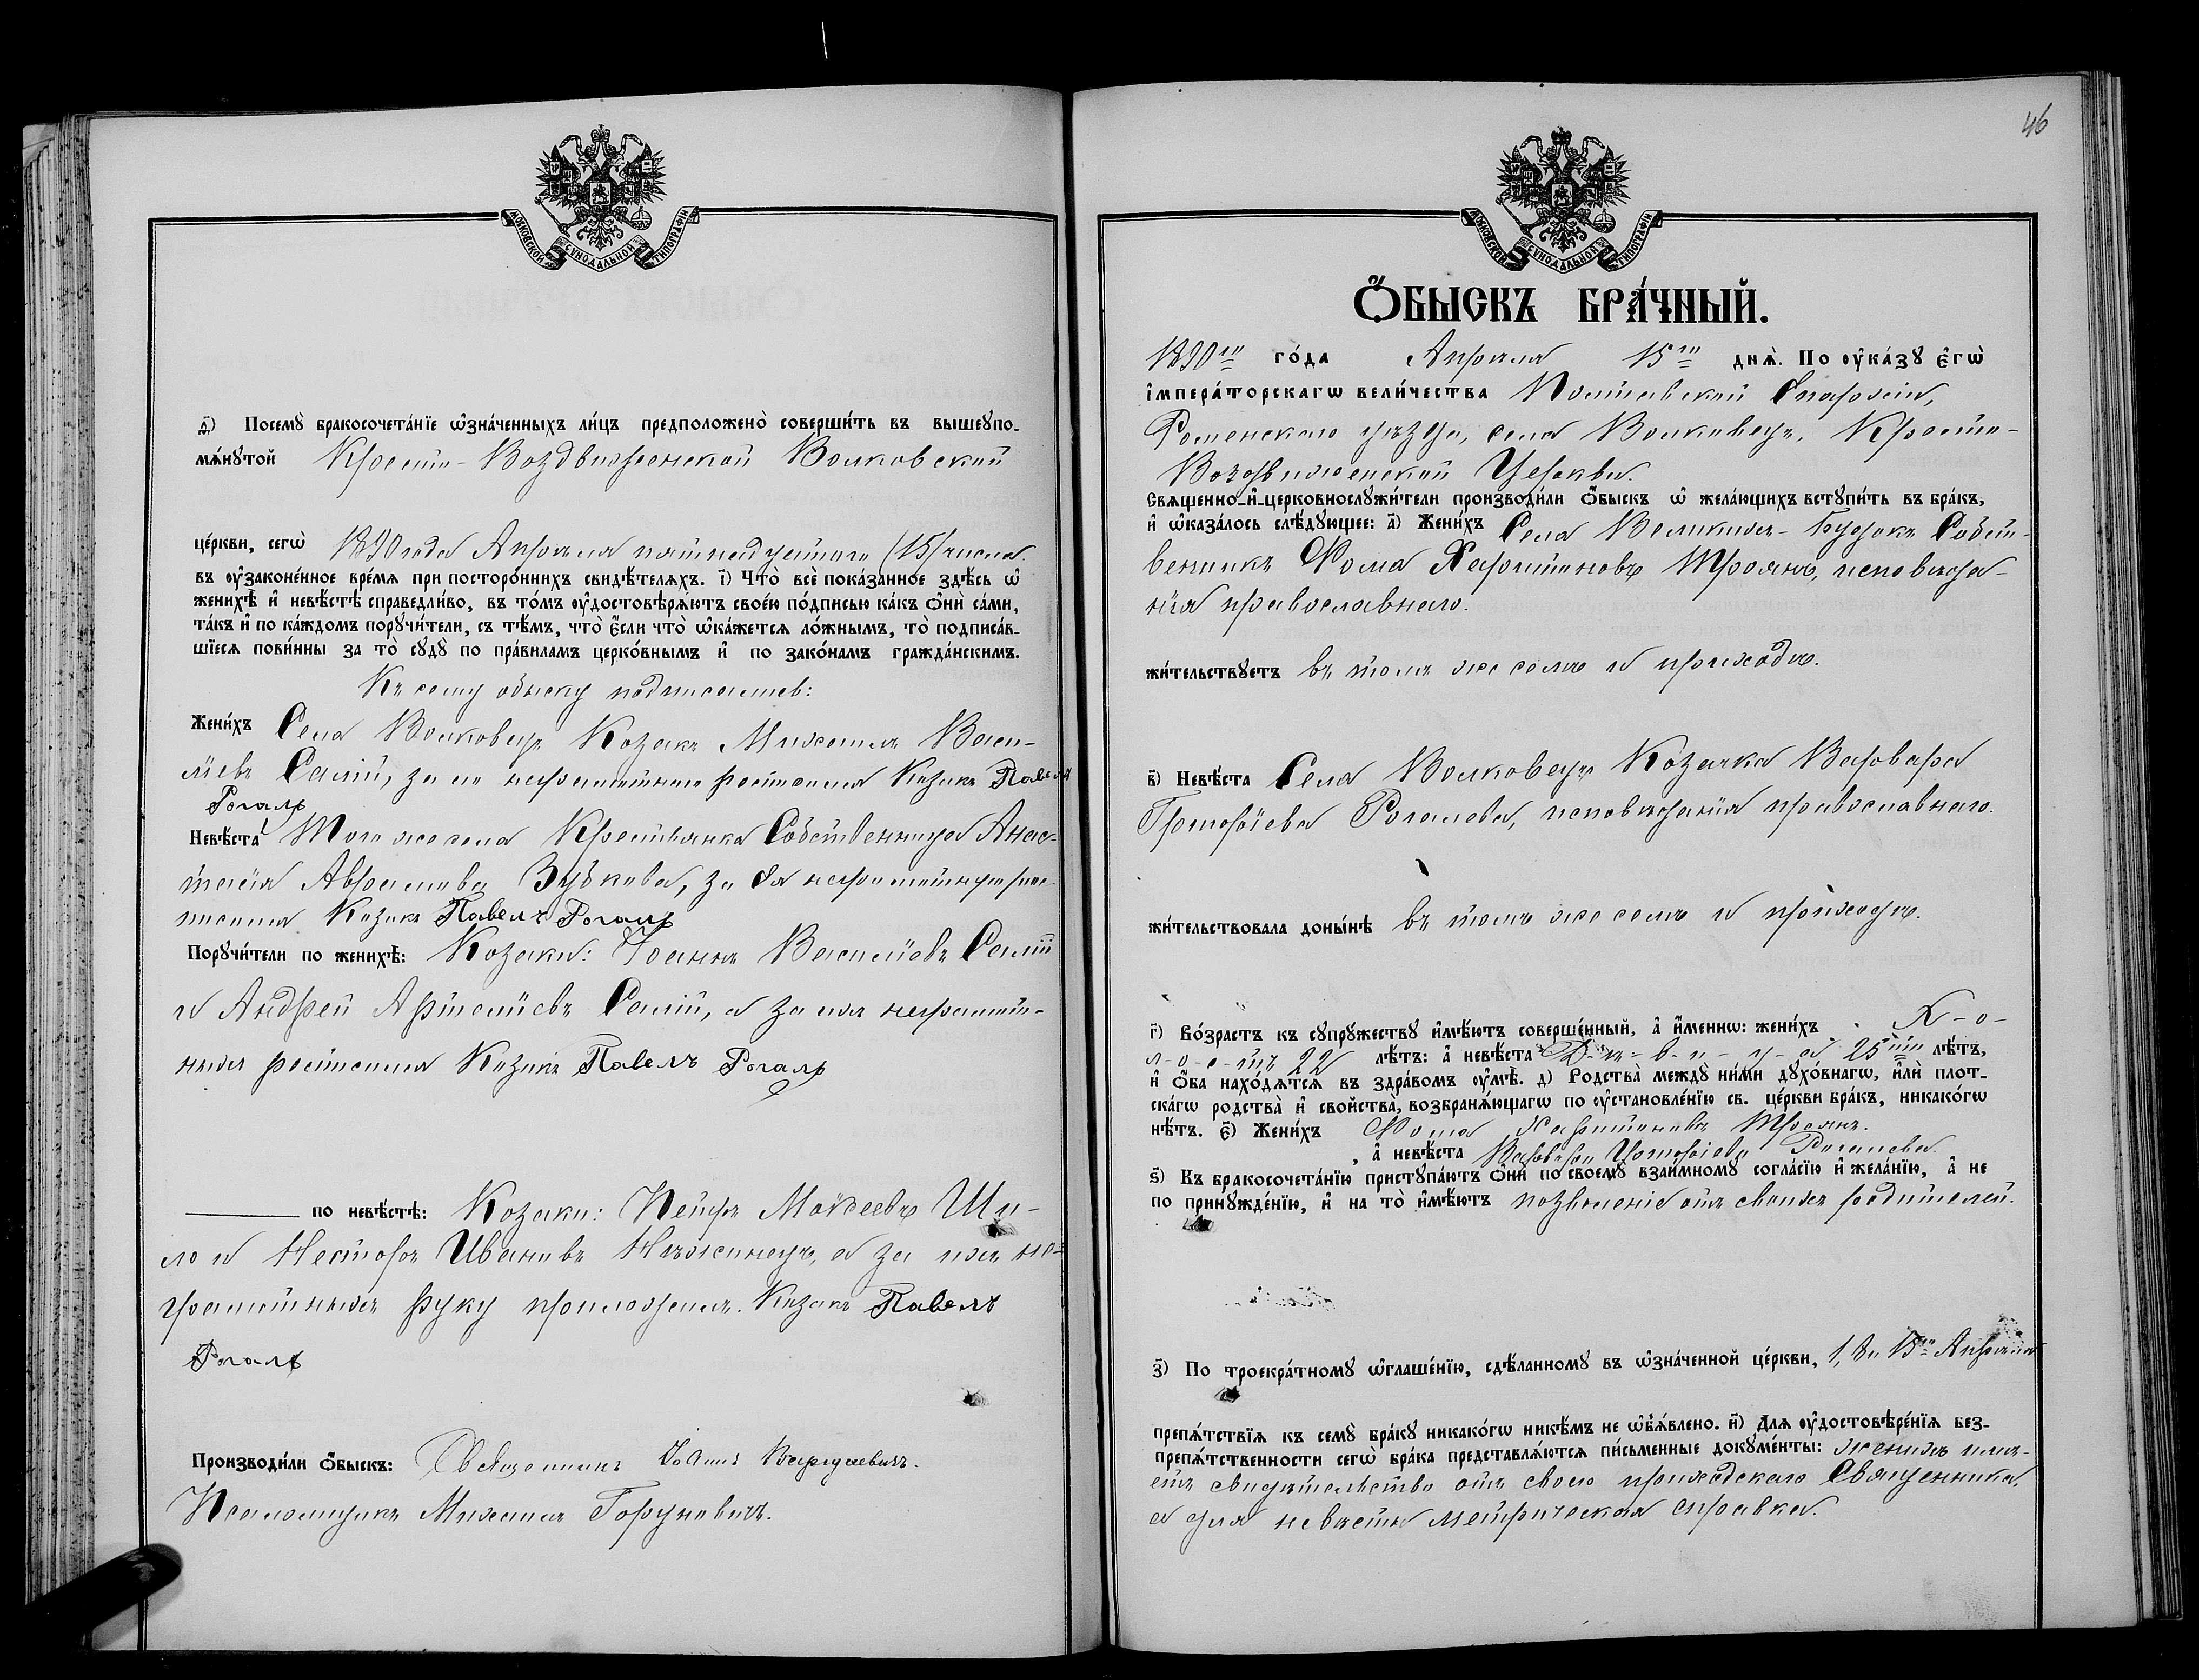 МОСКОВСКОЙ СѴНОДАЛЬНОЙ ТИПОГРАФІИ
д҃) Посемꙋ̀ бракосочета́нїе ѡ҆зна́ченныхъ ли́цъ предположено̀ соверши́ть въ вышеꙋпо-
мѧ́нꙋтой Кресто-Воздвиженской Волковской
це́ркви, сегѡ̀ 1890 года Апрѣля пятнадцатаго (15) числа
въ ᲂу҆законе́нное вре́мѧ при посторо́ннихъ свидѣ́телѧхъ. і҃) Что̀ всѐ пока́занное здѣ́сь ѡ҆
женихѣ̀ и҆ невѣ́стѣ справедли́во, въ то́мъ ᲂу҆достовѣрѧ́ютъ свое́ю по́дписью ка́къ ѻ҆нѝ са́ми,
та́къ и҆ по ка́ждомъ порꙋчи́тели, съ тѣ́мъ, что̀ є҆́сли что̀ ѡ҆ка́жетсѧ ло́жнымъ, то̀ подписа́в-
шїесѧ пови́нны за то̀ сꙋдꙋ̀ по пра́виламъ церко́внымъ и҆ по зако́намъ гражда́нскимъ.
Къ сему обыску подписались:
Жени́хъ Села Волковецъ Козакъ Михаилъ Васи-
лiевъ Салiй, за не неграмотнаго росписался Козакъ Павелъ
Рогаль
Невѣ́ста Того же села Крестьянка Собственница Анас-
тасiя Аврамова Зубкова, за Ея неграмотную рос-
писался Козакъ Павелъ Рогаль
Порꙋчи́тели по женихѣ̀: Козаки: Іоаннъ Василiевъ Салiй
и Андрей Артемiевъ Салiй, а за ихъ неграмот-
ныхъ росписался Козакъ Павелъ Рогаль
по невѣ́стѣ: Козаки: Петръ Моѵсеевъ Ши-
ло и Несторъ Ивановъ Нѣжинецъ, а за ихъ не-
грамотныхъ руку приложилъ Козакъ Павелъ
Рогаль
Производи́ли ѻ҆́быскъ: Священникъ Іоаннъ
Псаломщикъ Михаилъ Горуновичъ.
46
МОСКОВСКОЙ СѴНОДАЛЬНОЙ ТИПОГРАФІИ
Ѻ҆́БЫСКЪ БРА́ЧНЫЙ.
1890го го́да Апрѣля 15го днѧ̀. По ᲂу҆ка́зꙋ є҆гѡ̀
і҆мпера́торскагѡ вели́чества Полтавской Епархiи,
Роменскаго уѣзда, села Волковецъ, Кресто-
Воздвиженской Церкви.
свѧщенно-и҆-церковнослꙋжи́тели производи́ли ѻ҆́быскъ ѡ҆ жела́ющихъ встꙋпи́ть въ бра́къ,
и҆ ѡ҆каза́лось слѣ́дꙋющее: а҃) Жени́хъ Села Великихъ-Будокъ Собст-
венникъ Ѳома Харитоновъ Троянъ, исповѣда-
нiя православнаго.
жи́тельствꙋетъ въ томъ же селѣ и приходѣ.
в҃) Невѣ́ста Села Волковецъ Козачка Варвара
Григорiева Рогалева, исповѣданiя православнаго.
жи́тельствовала доны́нѣ въ томъ же селѣ и приходѣ.
г҃) Во́зрастъ къ сꙋпрꙋжествꙋ и҆мѣ́ютъ соверше́нный, а҆ и҆́меннѡ: жени́хъ Х-о-
л-о-с-тъ 22 лѣ́тъ: а҆ невѣ́ста Д-ѣ-в-и-ц-а 25ти лѣ́тъ,
и҆ ѻ҆́ба нахо́дѧтсѧ въ здра́вомъ ᲂу҆мѣ̀. д҃) Родства̀ междꙋ ни́ми дꙋхо́внагѡ, и҆лѝ плот-
ска́гѡ родства̀ и҆ свойства̀, возбранѧ́ющагѡ по ᲂу҆становле́нїю св. це́ркви бра́къ, никако́гѡ
нѣ́тъ. є҃) Жени́хъ Ѳома Харитоновъ Троянъ.
, а҆ невѣ́ста Варвара Григорiева Рогалева.
ѕ҃) Къ бракосочета́нїю пристꙋпа́ютъ ѻ҆нѝ по своемꙋ̀ взаи́мномꙋ согла́сїю и҆ жела́нїю, а҆ не
по принꙋжде́нїю, и҆ на то̀ и҆мѣ́ютъ позволенiе отъ своихъ родителей.
з҃) По троекра́тномꙋ ѡ҆глаше́нїю, сдѣ́ланномꙋ въ ѡ҆зна́ченной це́ркви, 1, 8 и 15го Апрѣля
препѧ́тствїѧ къ семꙋ̀ бра́кꙋ никако́гѡ никѣ́мъ не ѡ҆б̾ѧ́влено. и҃) Длѧ ᲂу҆достовѣре́нїѧ без-
препѧ́тственности сегѡ̀ бра́ка представлѧ́ютсѧ пи́сьменные докꙋме́нты: женихъ имѣ-
етъ свидѣтельство отъ своего приходскаго Священника,
а для невѣсты метрическая справка.